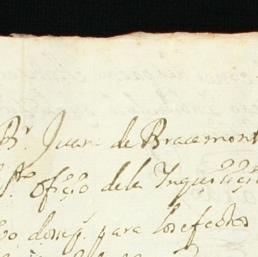 Br Juan de Bracamont
Sto ofiçio de la Inquisiçi
para los efectos